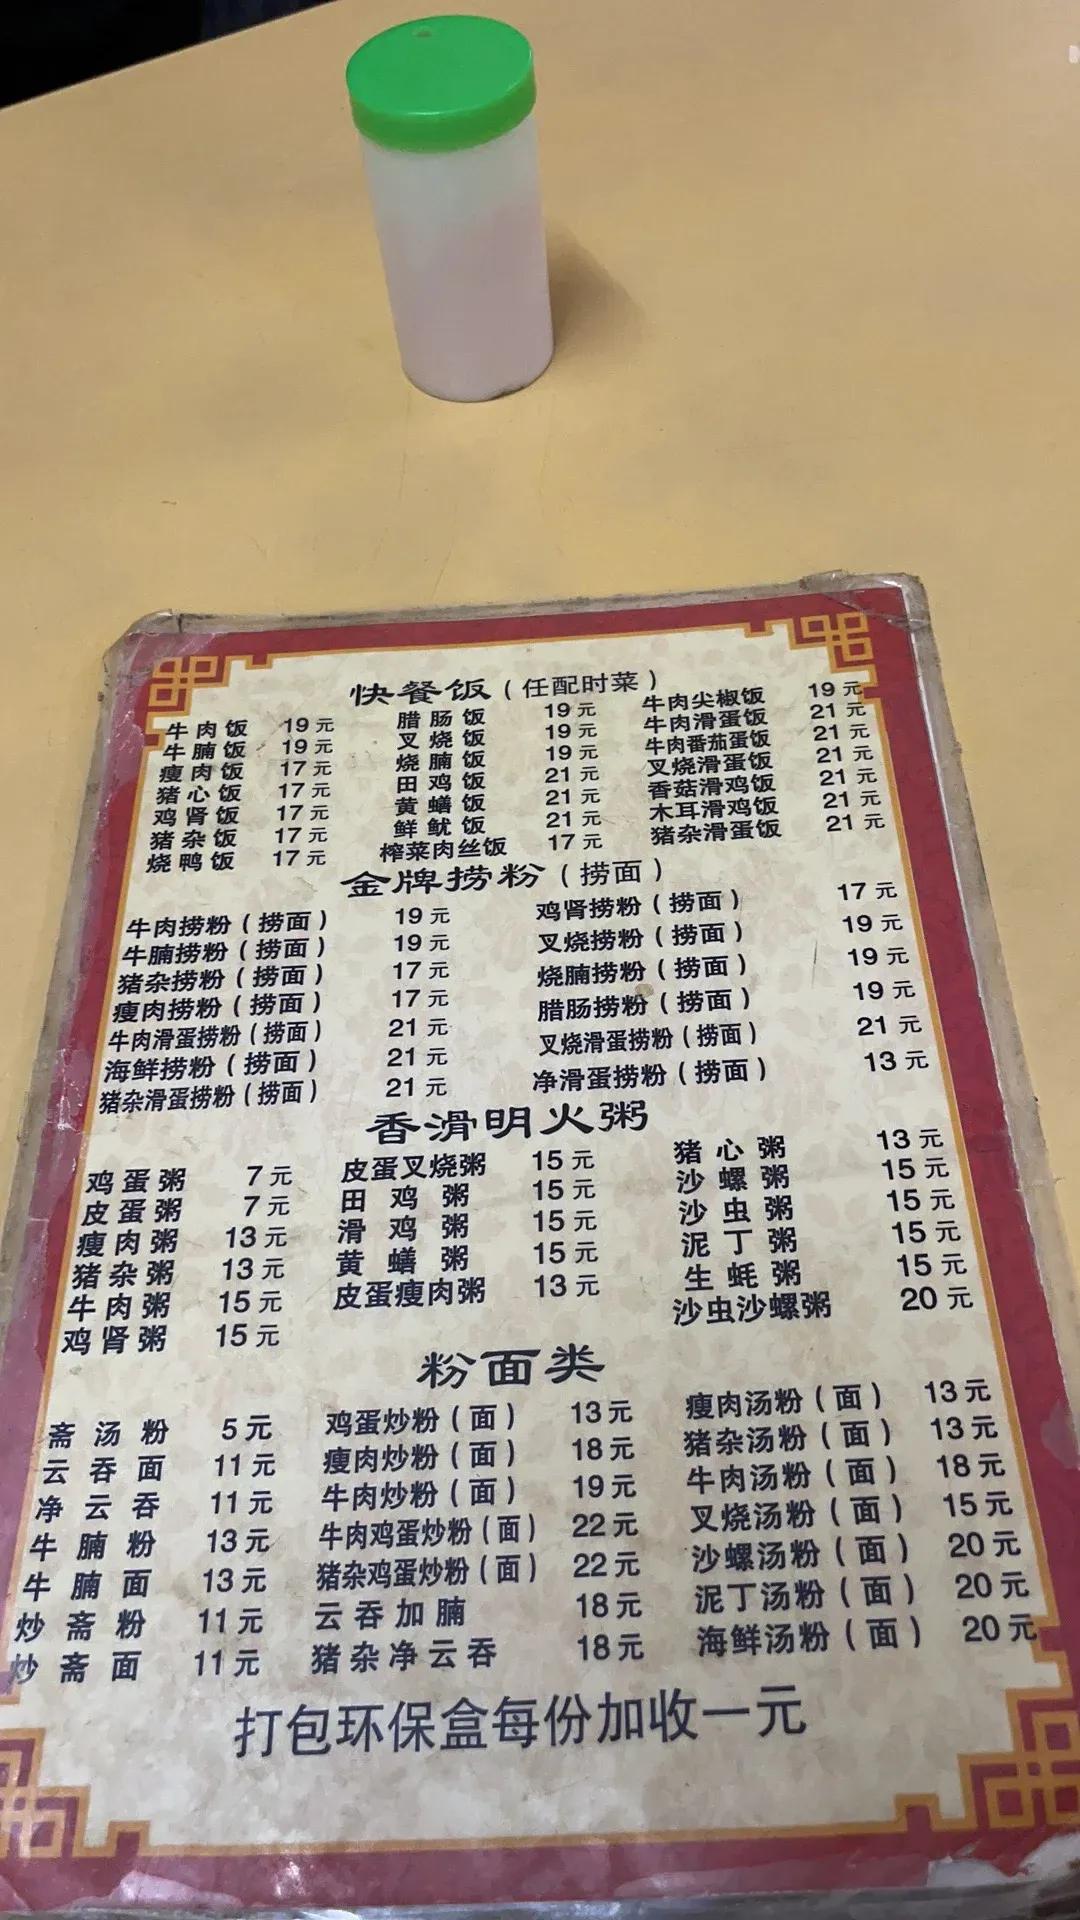 快餐饭（任配时菜）
牛肉饭 19元 腊肠饭 19元 牛肉尖椒饭 19元
牛腩饭 19元 叉烧饭 19元 牛肉滑蛋饭 21元
瘦肉饭 17元 烧腩饭 19元 牛肉番茄蛋饭 21元
猪心饭 17元 田鸡饭 21元 叉烧滑蛋饭 21元
鸡肾饭 17元 黄鳝饭 21元 香菇滑鸡饭 21元
猪杂饭 17元 鲜鱿饭 21元 木耳滑鸡饭 21元
烧鸭饭 17元 榨菜肉丝饭 17元 猪杂滑蛋饭 21元
金牌捞粉（捞面）
牛肉捞粉（捞面） 19元 鸡肾捞粉（捞面） 17元
牛腩捞粉（捞面） 19元 叉烧捞粉（捞面） 19元
猪杂捞粉（捞面） 17元 烧腩捞粉（捞面） 19元
瘦肉捞粉（捞面） 17元 腊肠捞粉（捞面） 19元
牛肉滑蛋捞粉（捞面） 21元 叉烧滑蛋捞粉（捞面） 21元
海鲜捞粉（捞面） 21元 净滑蛋捞粉（捞面） 13元
猪杂滑蛋捞粉（捞面） 21元
香滑明火粥
鸡蛋粥 7元 皮蛋叉烧粥 15元 猪心粥 13元
皮蛋粥 7元 田鸡粥 15元 沙螺粥 15元
瘦肉粥 13元 滑鸡粥 15元 沙虫粥 15元
猪杂粥 13元 黄鳝粥 15元 泥丁粥 15元
牛肉粥 15元 皮蛋瘦肉粥 13元 生蚝粥 15元
鸡肾粥 15元 沙虫沙螺粥 20元
粉面类
斋汤粉 5元 鸡蛋炒粉（面） 13元 瘦肉汤粉（面） 13元
云吞面 11元 瘦肉炒粉（面） 18元 猪杂汤粉（面） 13元
净云吞 11元 牛肉炒粉（面） 19元 牛肉汤粉（面） 18元
牛腩粉 13元 牛肉鸡蛋炒粉（面） 22元 叉烧汤粉（面） 15元
牛腩面 13元 猪杂鸡蛋炒粉（面） 22元 沙螺汤粉（面） 20元
炒斋粉 11元 云吞加腩 18元 泥丁汤粉（面） 20元
炒斋面 11元 猪杂净云吞 18元 海鲜汤粉（面） 20元
打包环保盒每份加收一元